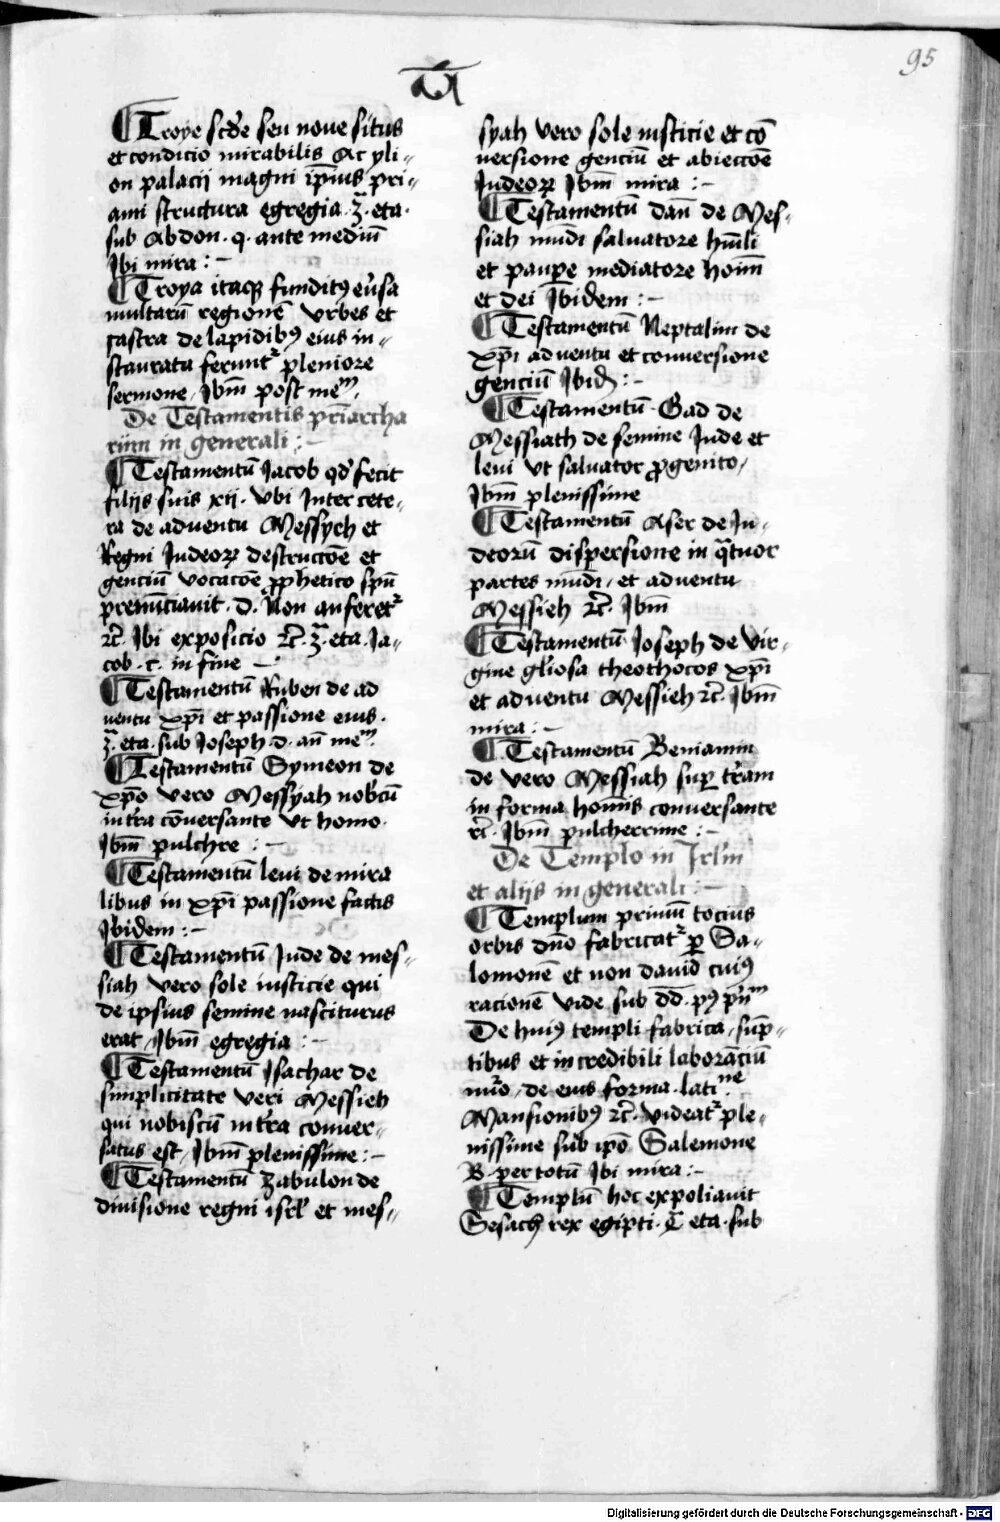 95
¶ Troye scde seu noue situs
et condicio mirabilis Ac yli-
on palacii magni ip̄ius pri-
ami structura egregia. ꝫ. eta.
sub Abdon. q. ante mediū
Ibi mira :-
¶ Troya itaqꝫ fundit9 eu̇sa
multarū regionē vrbes et
castra de lapidib9 eius in-
staurata ferunt᷑ pleniore
sermone. Ibm̄ post meᵐ.
De Testamentis pr̄iarcha
rum in generali :-
¶ Testamentū Jacob qd̄ fecit
filijs suis xij. vbi Inter cete-
ra de aduentu Messyeh et
Regni Judeoꝝ destruccōe et
genciū vocacōe ꝓphetico spū
prenūciauit. d. Non auferet᷑
ꝛc̄. Ibi exposicio ꝛc̄. ꝫ. eta. Ja-
cob. c. in fine -
¶ Testamentū Ruben de ad
uentu xp̄i et passione eius.
ꝫ. eta. sub Joseph. d. an̄ meᵐ.
¶ Testamentū Symeon de
xp̄o vero Messyah nobcū
in tr̄a cōuersante vt homo.
Ibm̄ pulchre :-
¶ Testamentū leui de mira
libus in xp̄i passione factis
Ibidem :-
¶ Testamentū Jude de mes-
siah vero sole iusticie qui
de ipsius semine nasciturus
erat, Ibm̄ egregia :-
¶ Testamentū Isachar de
simplicitate veri Messieh
qui nobiscū in tr̄a conuer-
satus est, Ibm̄ plenissime :-
¶ Testamentū Zabulon de
diuisione regni isrl̄ et mes-
syah vero sole iusticie et cō
uersione genciū et abieccōe
Judeoꝝ Ibm̄ mira :-
¶ Testamentū dan̄ de Mes-
siah mūdi saluatore hūili
et paupe mediatore hom̄
et dei Ibidem :-
¶ Testamentū Neptalim de
xp̄i aduentu et conuersione
genciū Ibid :-
¶ Testamentū Gad de
Messiath de semine Jude et
leui vt saluator ꝓgenito,
Ibm̄ plenissime
¶ Testamentū Aser de Ju-
deorū dispersione in qᵃtuor
partes mūdi, et aduentu
Messieh ꝛc̄. Ibm̄
¶ Testamentū Joseph de vir-
gine gl̄iosa theothocos xp̄i
et aduentu Messieh ꝛc̄. Ibm̄
mira :-
¶ Testamentū Beniamin
de vero Messiah sup tr̄am
in forma hom̄is conuersante
ꝛc̄. Ibm̄ pulcherrime :-
De Templo in Jrl̄m
et alijs in generali :-
¶ Templum primū tocius
orbis dn̄o fabricat᷑ ꝑ Sa-
lomonē et non dauid cui9
racionē vide sub dd̄. p9 pn̄ᵐ
De hui9 templi fabrica, sūp-
tibus et incredibili laboranciū
nūo, de eius forma. lati.ⁿᵉ
Mansionib9 ꝛc̄. videat᷑ ple-
nissime sub ip̄o Salemone
B. per totū Ibi mira :-
¶ Templū hoc expoliauit
Sesach rex egipti. C̄ eta. sub
Digitalisierung gefördert durch die Deutsche Forschungsgemeinschaft - DFG